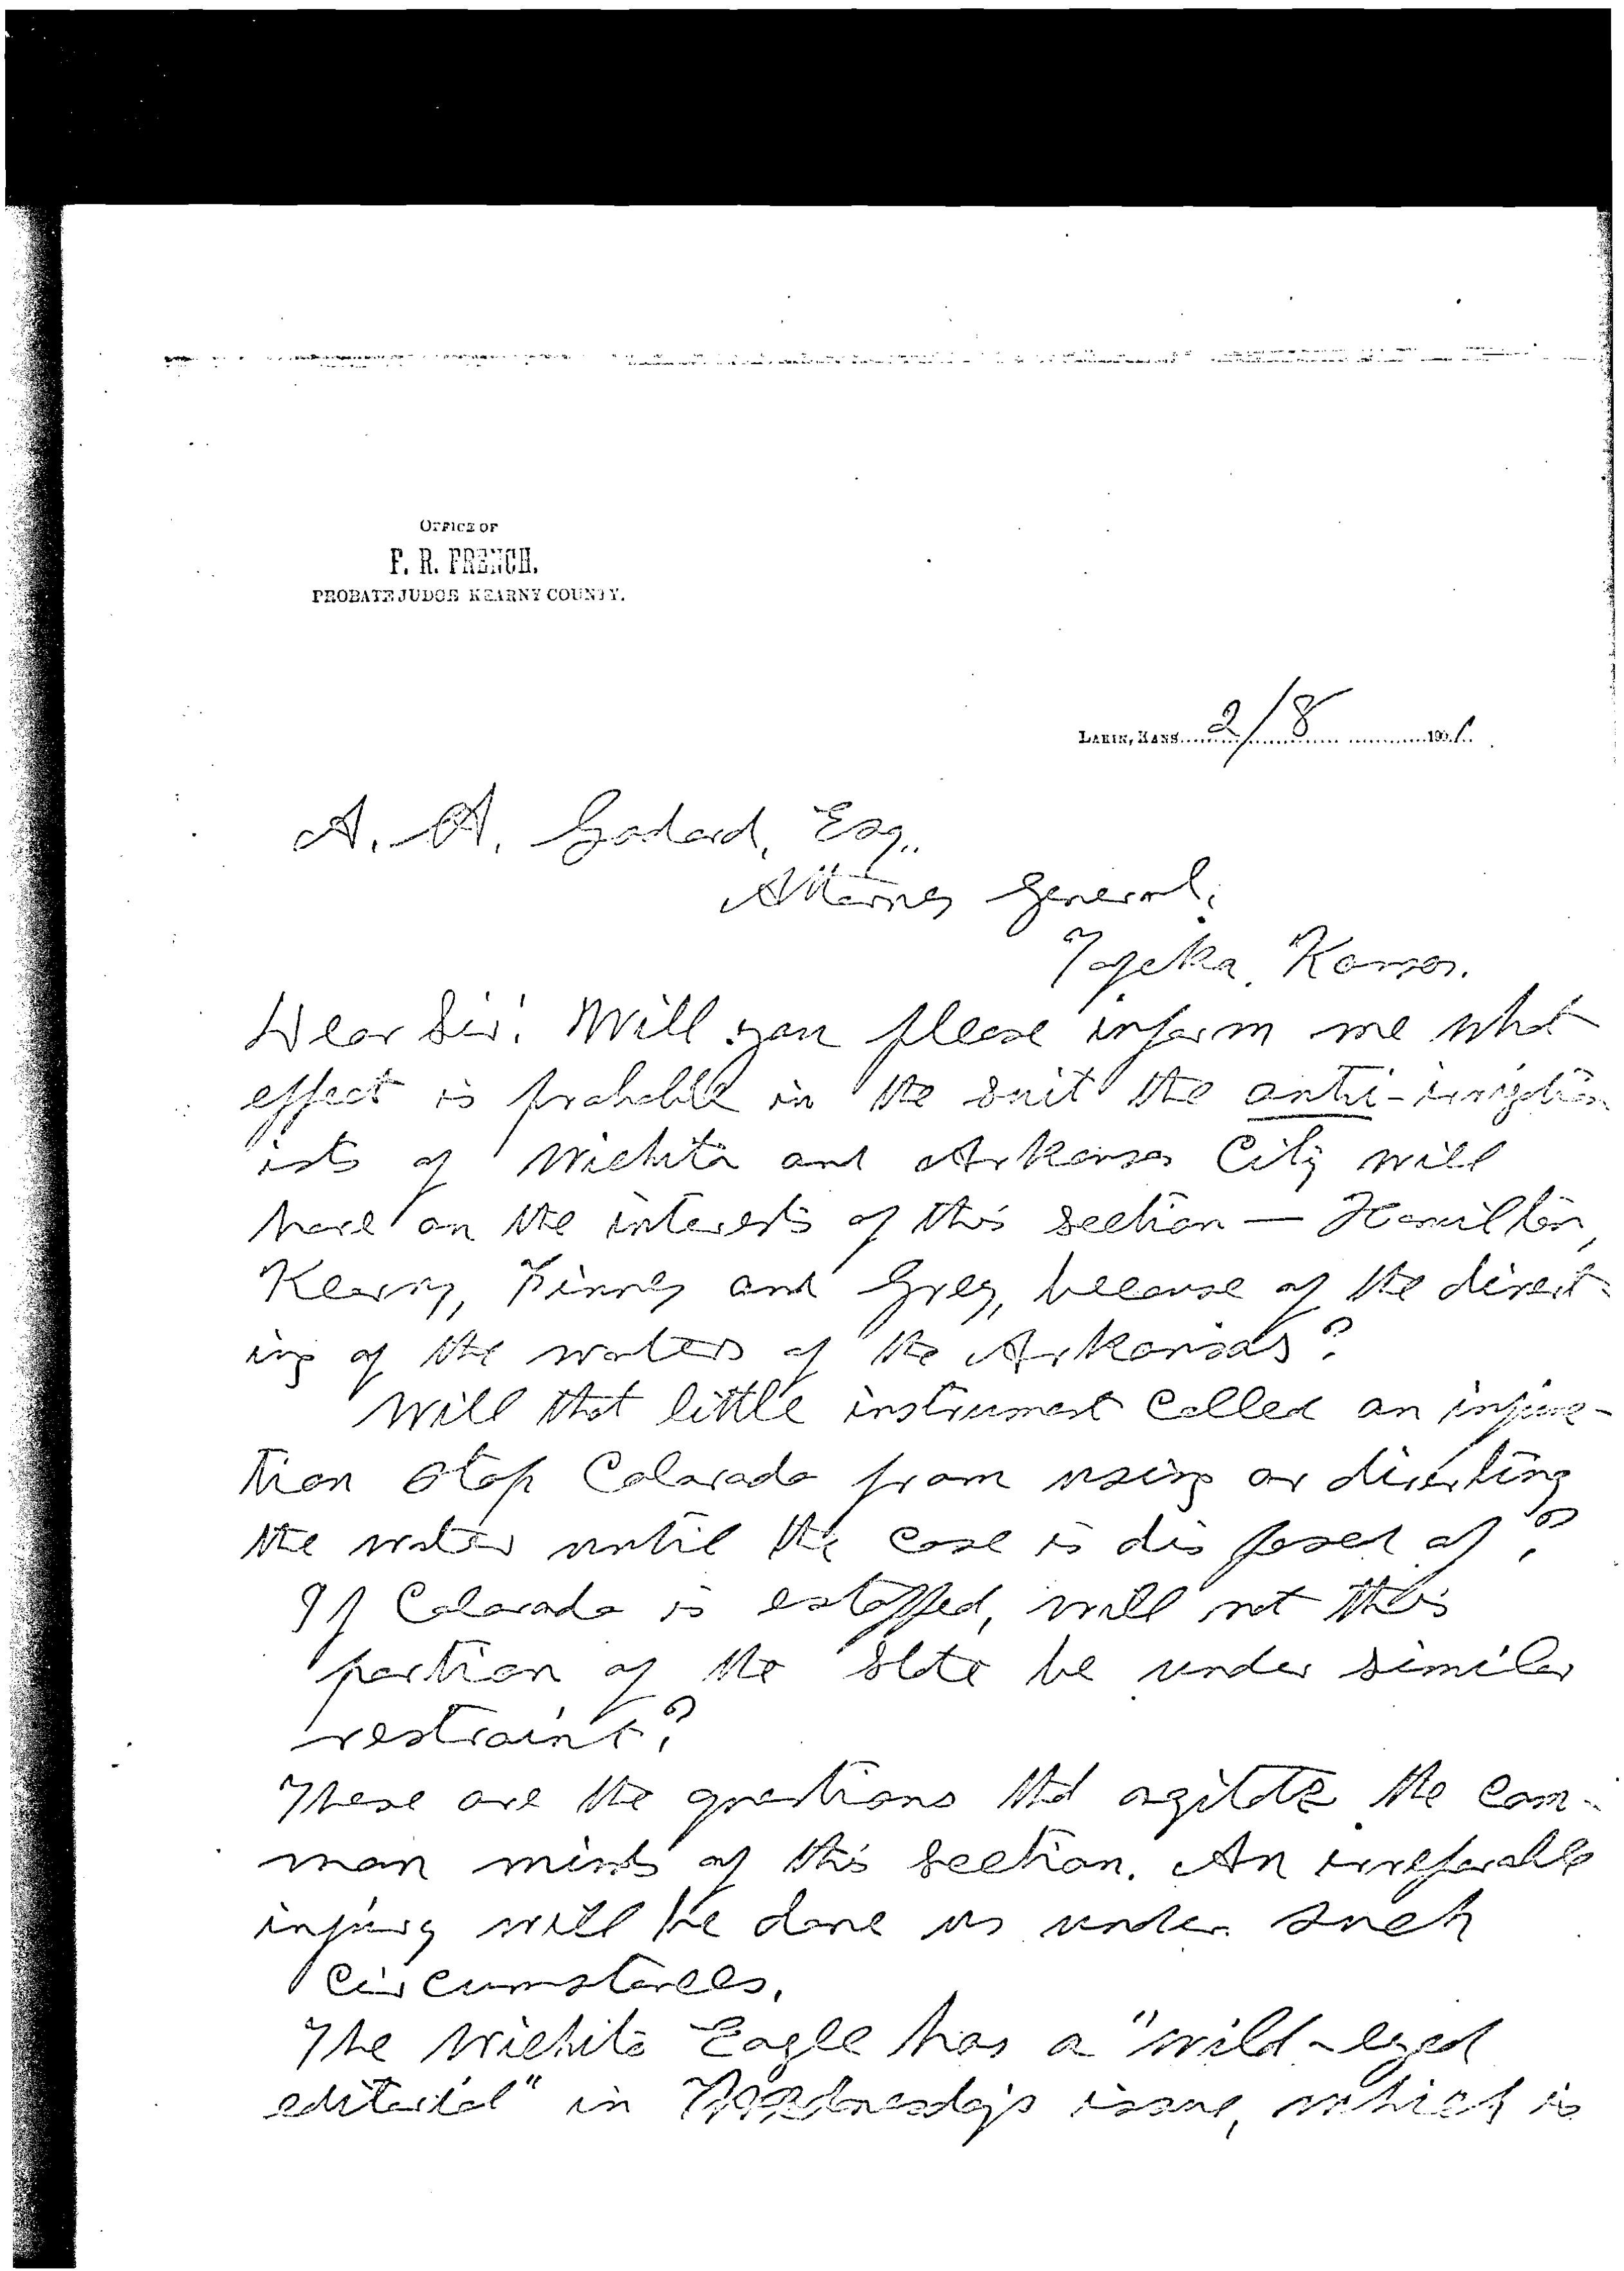 OFFICE OF
F. R. FRENCH.
PROBATE JUDGE KEARNY COUNTY.
LAKIN, KANS. 2/8 1901.
A. A. Godard, Esq.,
Attorney General,
Topeka, Kansas.
Dear Sir: Will you please inform me what
effect is probable in the suit the anti-irrigation
ists of Wichita and Arkansas City will
have on the interests of this section — Hamilton,
Kearny, Finney and Grey, because of the divert-
ing of the waters of the Arkansas?
Will that little instrument called an injunc-
tion stop Colorado from using or diverting
the water until the case is disposed of?
If Colorado is estopped, will not this
portion of the State be under similar
restraint?
These are the questions that agitate the com-
mon minds of this section. An irreparable
injury will be done us under such
circumstances.
The Wichita Eagle has a "wild-eyed
editorial" in Wednesday's issue, which is